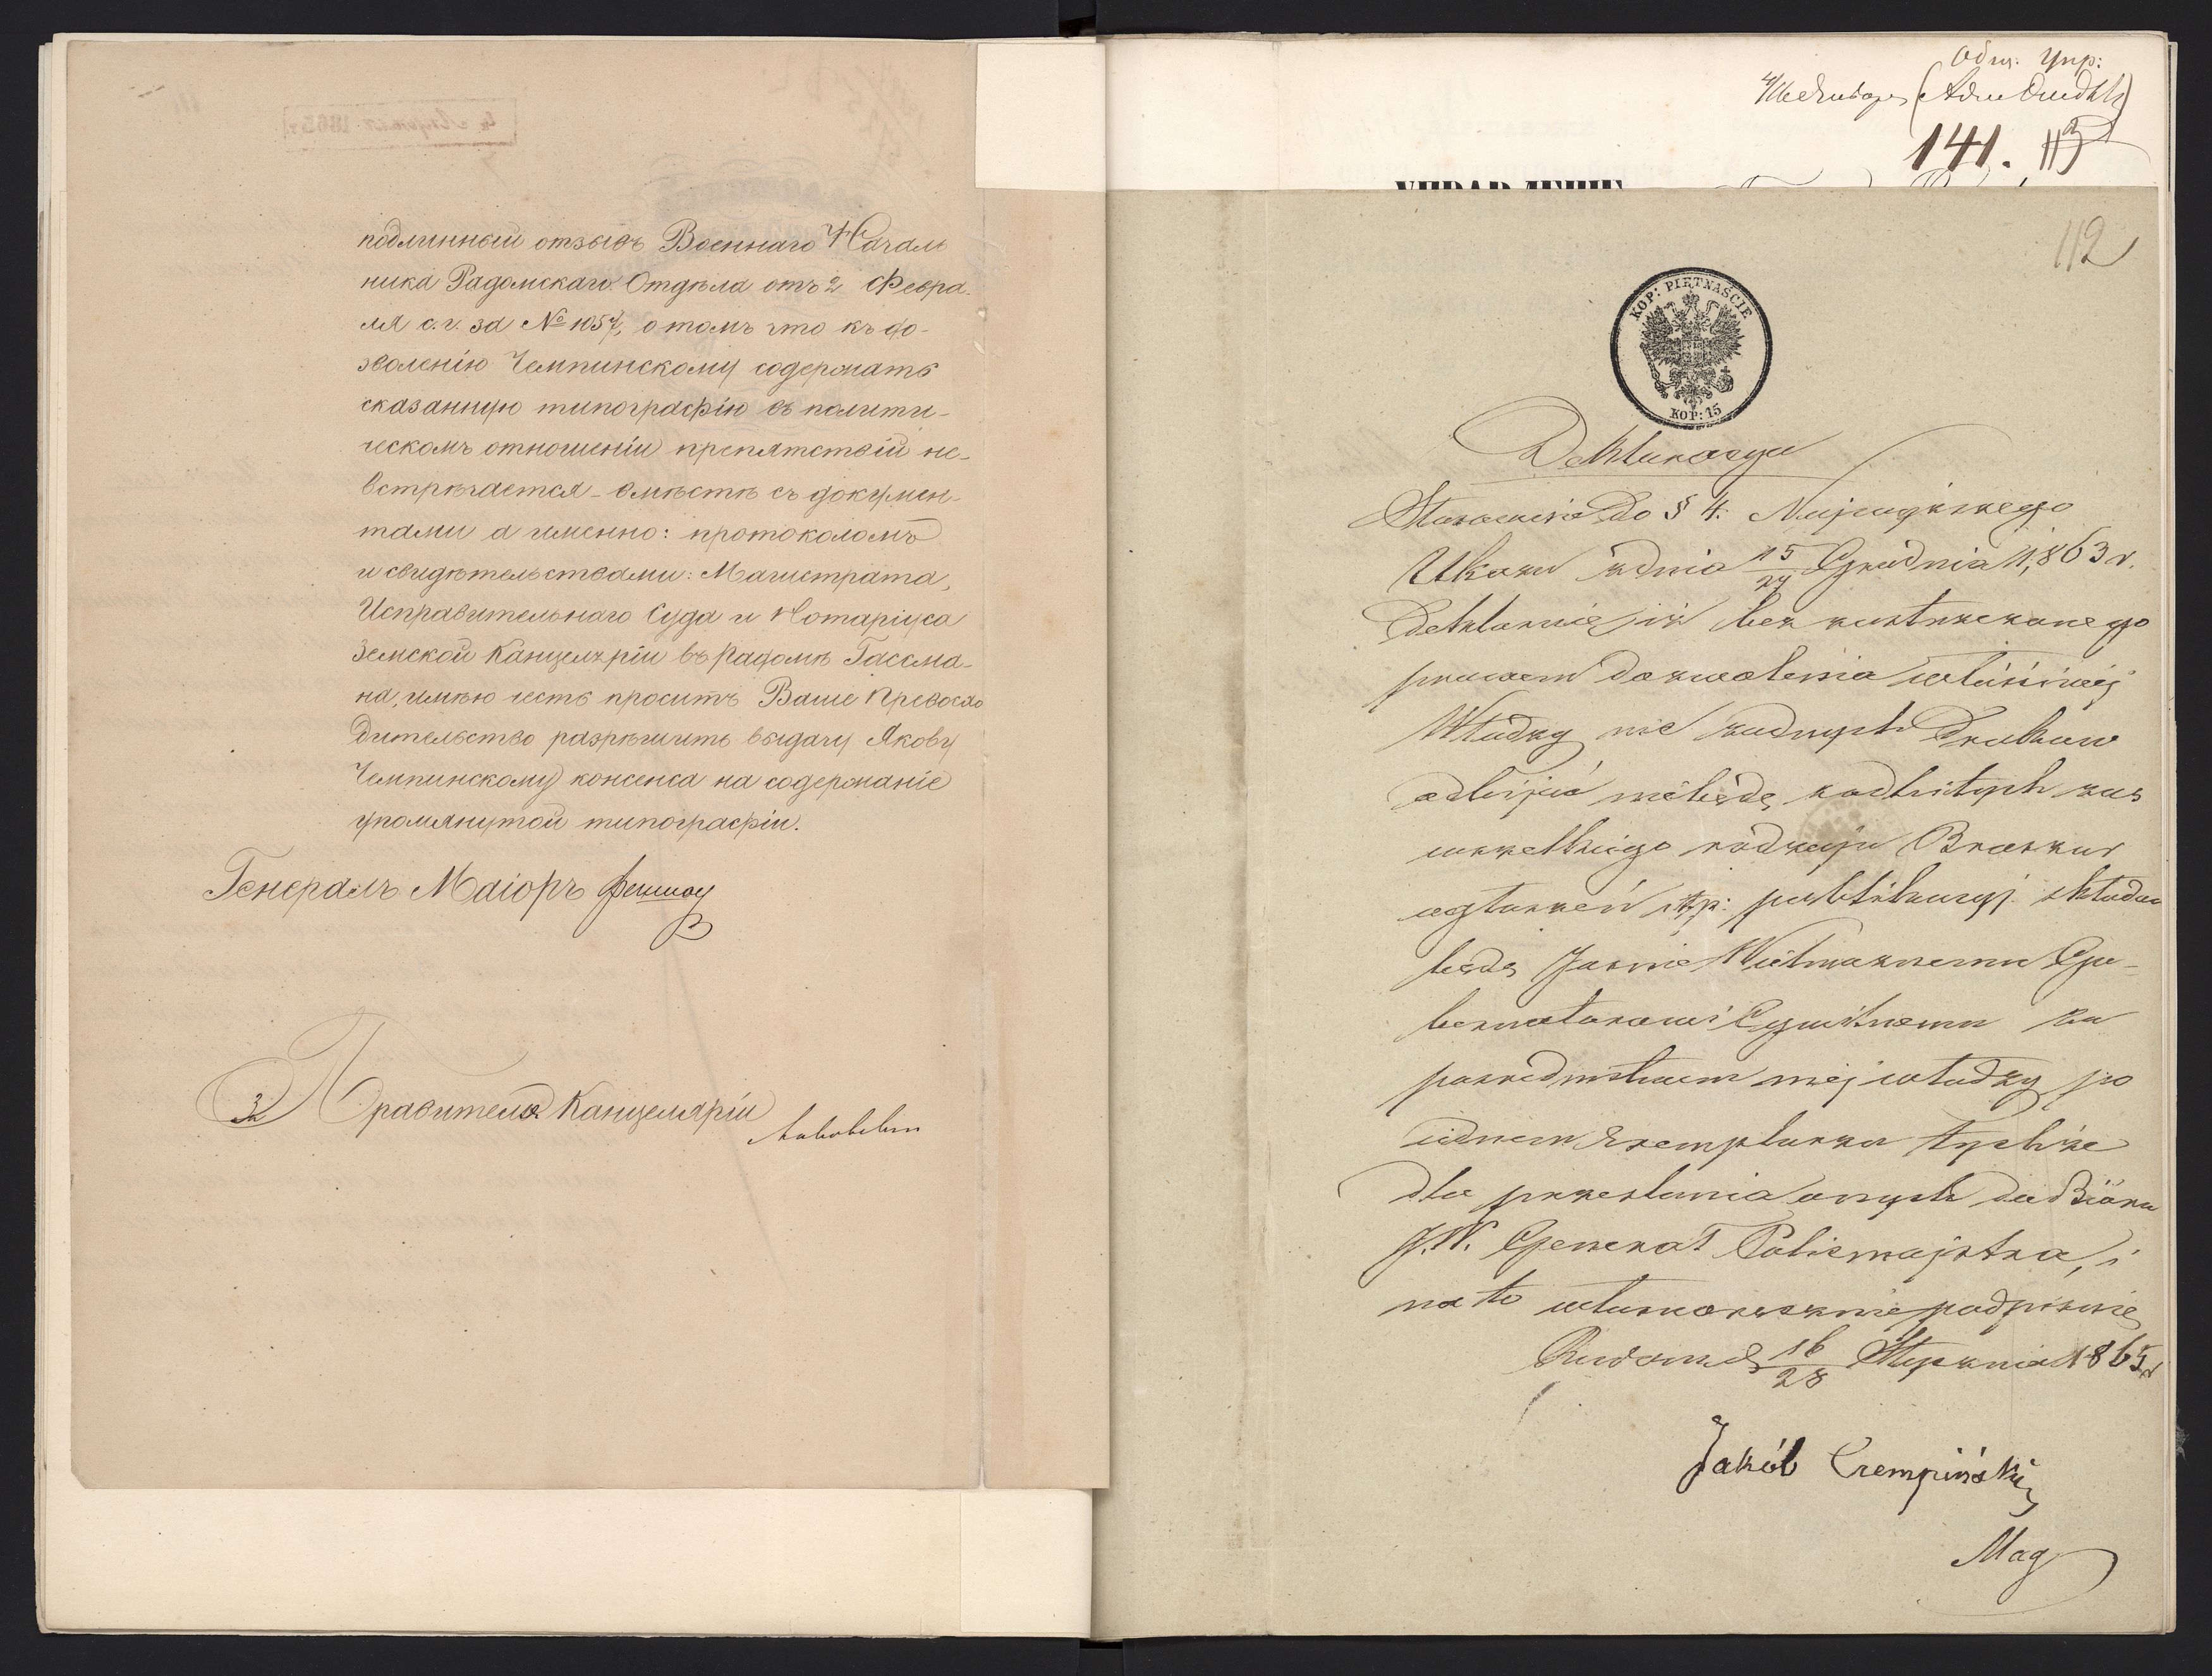 подлинный отзывъ Военнаго Началь
ника Радомскаго Отдѣла отъ 2 Февра-
ля с.г. за № 1057, о томъ что къ до-
зволенію Чемпинскому содержать
сказанную типографію въ полити-
ческомъ отношеніи препятствій не-
встрѣчается - вмѣстѣ съ докумен-
тами а именно: протоколомъ
и свидѣтельствами: Магистрата,
Исправительнаго Суда и Нотаріуса
Земской Канцеляріи въ Радомѣ Гассма-
на, имѣю честь просить Ваше Превосхо
дительство разрѣшить выдачу Якову
Чемпинскому консенса на содержаніе
упомянутой типографіи.
Генералъ Маіоръ
За Правителя Канцеляріи
Общ: Упр:
141. 113
УПРАВЛЕНІЕ
112
KOP: PIĘTNAŚCIE
KOP: 15
Deklaracya
Stosownie Do § 4. Najwyższego
Ukazu z dnia 15/27 Grudnia 1,863 r.
Deklaruję iż bez zastrzeżonego
prawem dozwolenia właściwej
Władzy nie żadnych Druków
odbijać nie będę, z odbitych zaś
wszelkiego rodzaju Broszur
ogłoszeń itp: publikacyj składać
będę Jaśnie Wielmożnemu Gu-
bernatorowi Cywilnemu za
pośrednictwem miej: władzy po
iednem Exemplarzu tychże
dla przesłania onych do Bióra
J.W. Generał Policmajstra, i
na to własnoręcznie podpisuię
Radom d. 16/28 Stycznia 1865 r
Jakób Czempiński
Mag